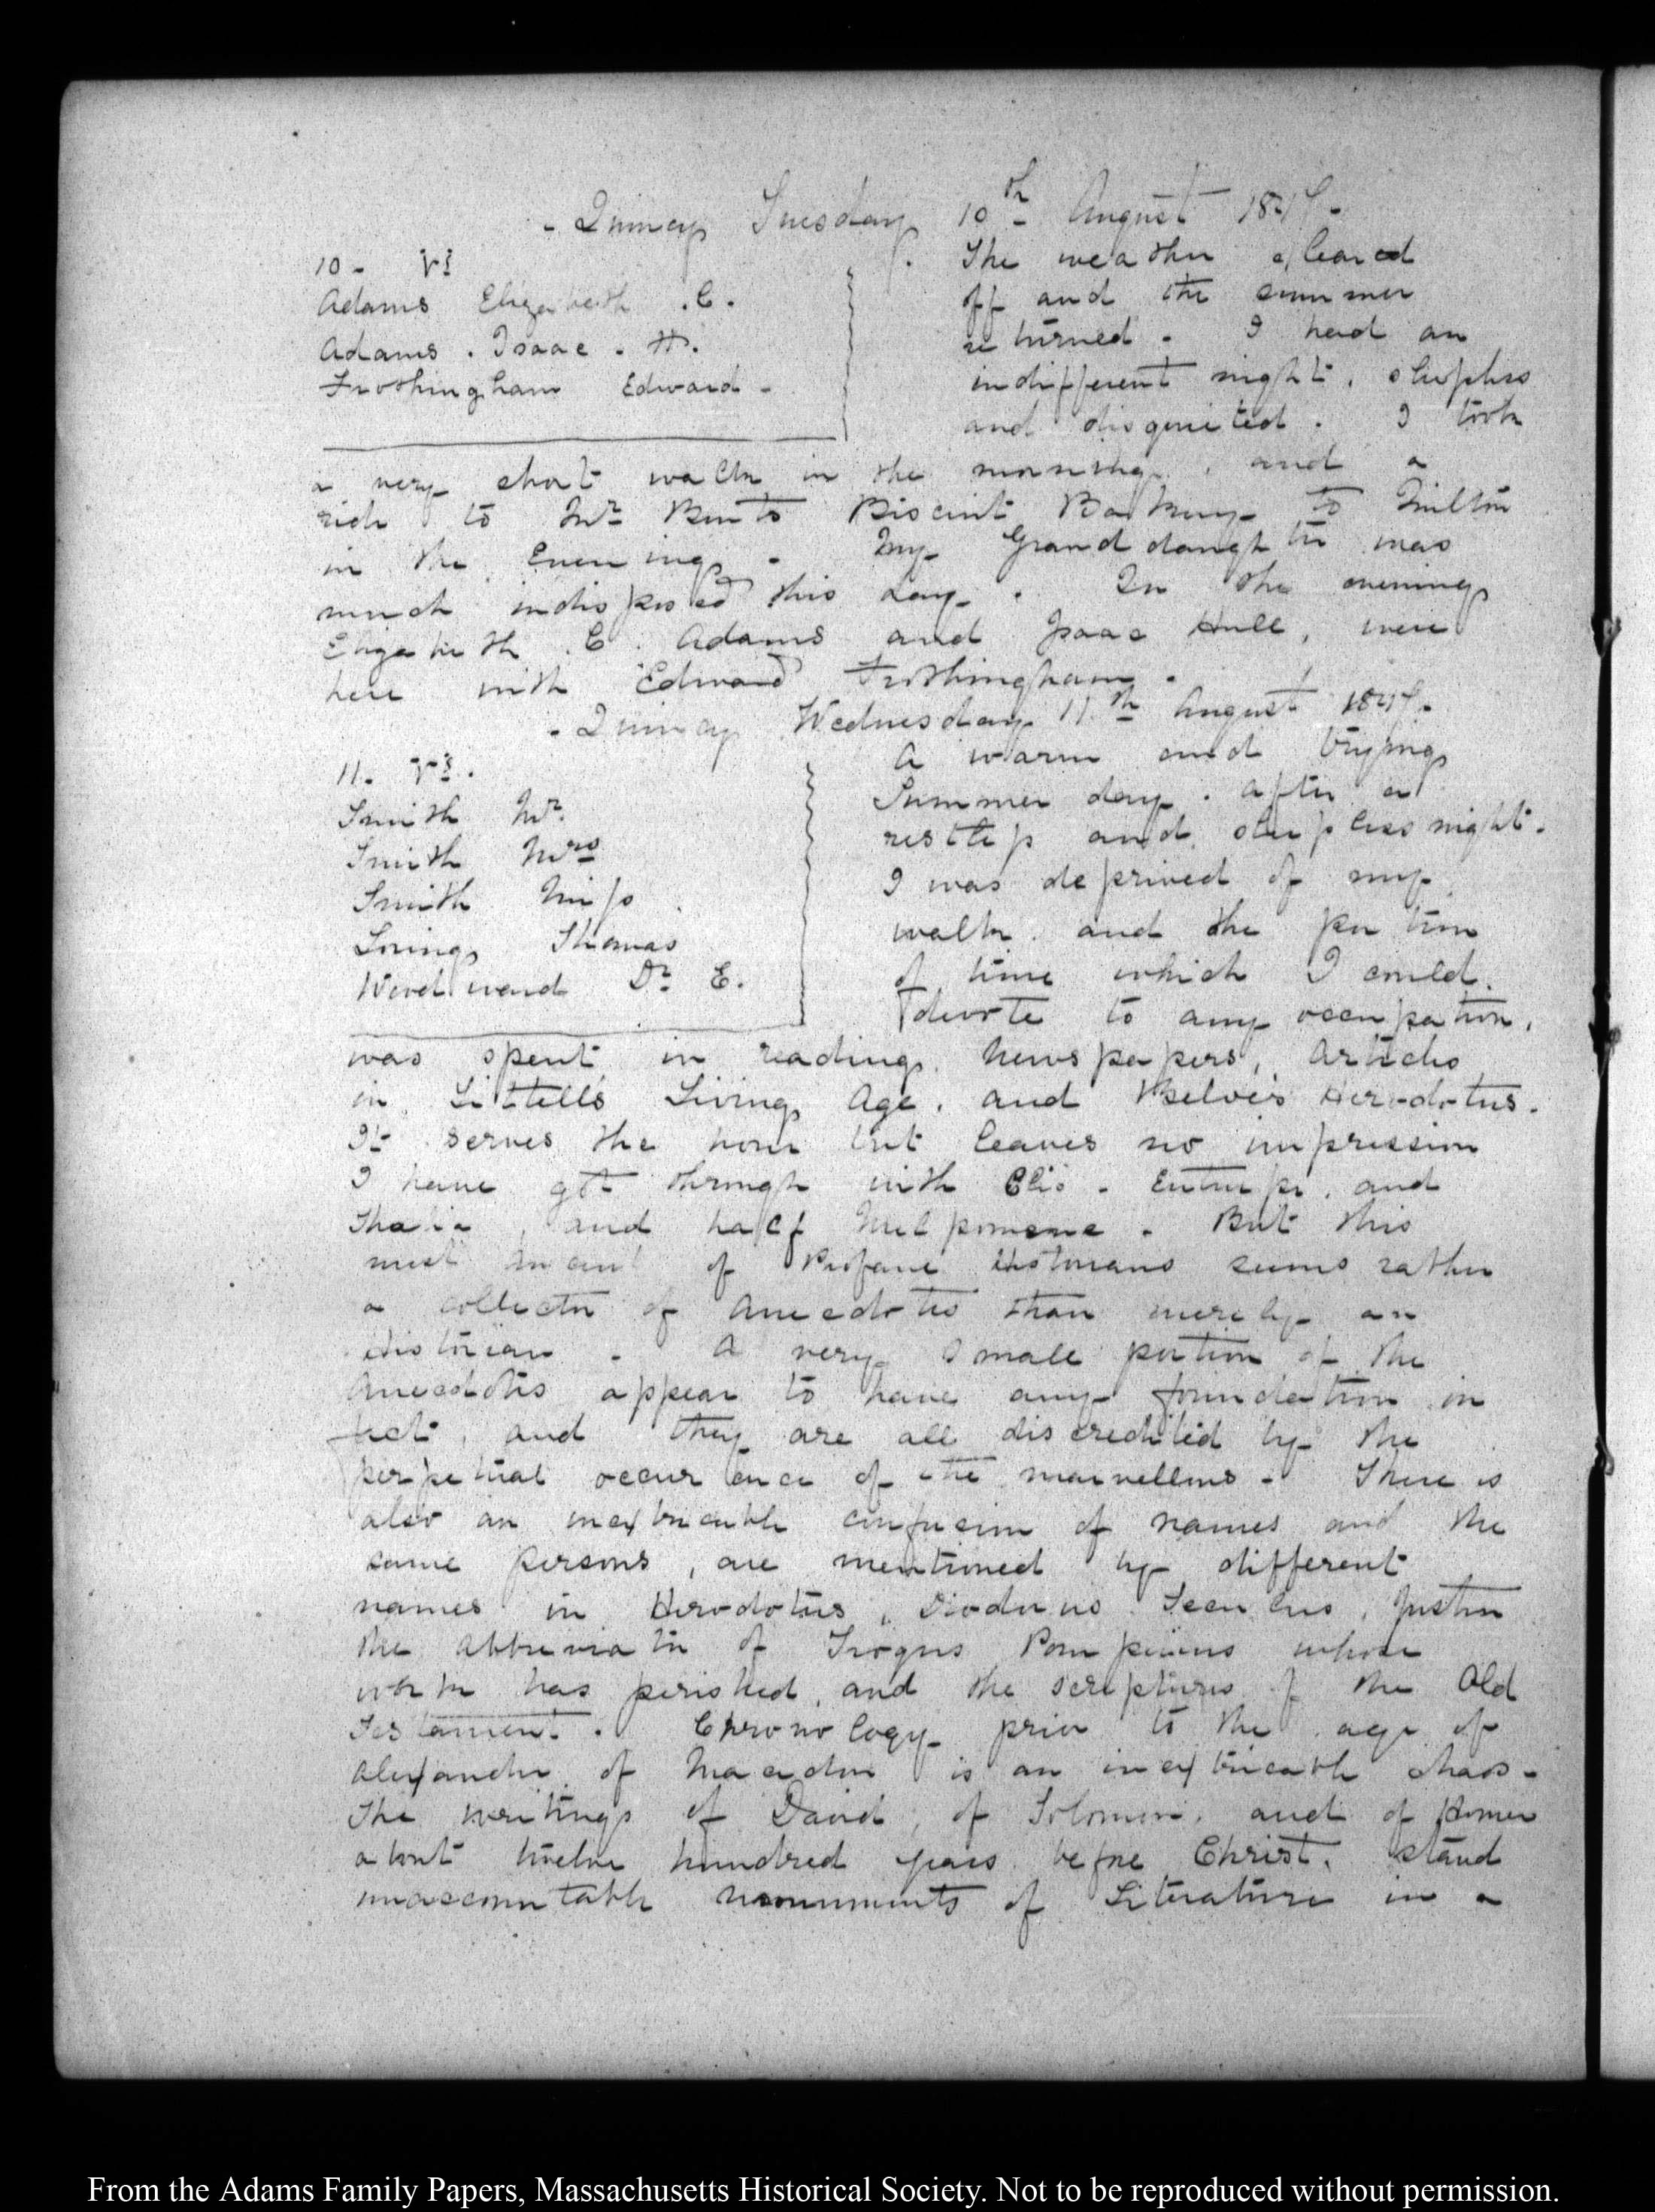 - Quincy Tuesday 10th August 1847 -
10 - Vs
Adams Elizabeth . C.
Adams . Isaac . H.
Frothingham Edward -
The weather cleared
off and the summer
returned - I had an
indifferent night, sleepless
and disquieted . I took
a very short walk in the morning, and a
ride to Mr Bent's Biscuit Bakery to Milton
in the Evening - My Granddaughter was
much indisposed this day . In the evening
Elizabeth . C . Adams and Isaac Hull, were
here with Edward Frothingham .
- Quincy Wednesday 11.th August 1847.
11. Vs.
Smith Mr
Smith Mrs
Smith Miss
Loring Thomas
Woodward Dr E.
A warm and trying
Summer day . after a
restless and sleepless night.
I was deprived of my
walk, and the portion
of time which I could
devote to any occupation,
was spent in reading Newspapers, Articles
in Littell's Living Age, and Beloe's Herodotus.
It serves the hour but leaves no impression
I have got through with Clio - Euterpe, and
Thalia, and half Melpomene - But this
most ancient of Profane Historians seems rather
a collector of Anecdotes than merely an
Historian - A very small portion of the
Anecdotes appear to have any foundation in
fact, and they are all discredited by the
perpetual occurrence of the marvellous - There is
also an inextricable confusion of names and the
same persons, are mentioned by different
names in Herodotus, Diodorus Seculus, Justin
the abbreviator of Trogus Pompeius whose
work has perished, and the scriptures of the Old
Testament . Chronology prior to the age of
Alexander of Macedon is an inextricable chaos -
The writings of David, of Solomon, and of Homer
about twelve hundred years before Christ, stand
unaccountable monuments of Literature in a
From the Adams Family Papers, Massachusetts Historical Society. Not to be reproduced without permission.